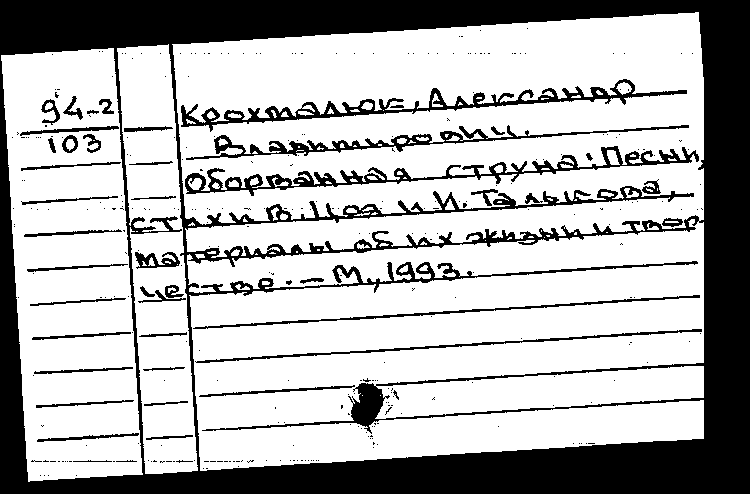 94-2
103
Крохмалюк, Александр
Владимирович.
Оборванная струна: Песни,
стихи В. Цоя и И. Талькова,
материалы об их жизни и твор-
честве. — М., 1993.